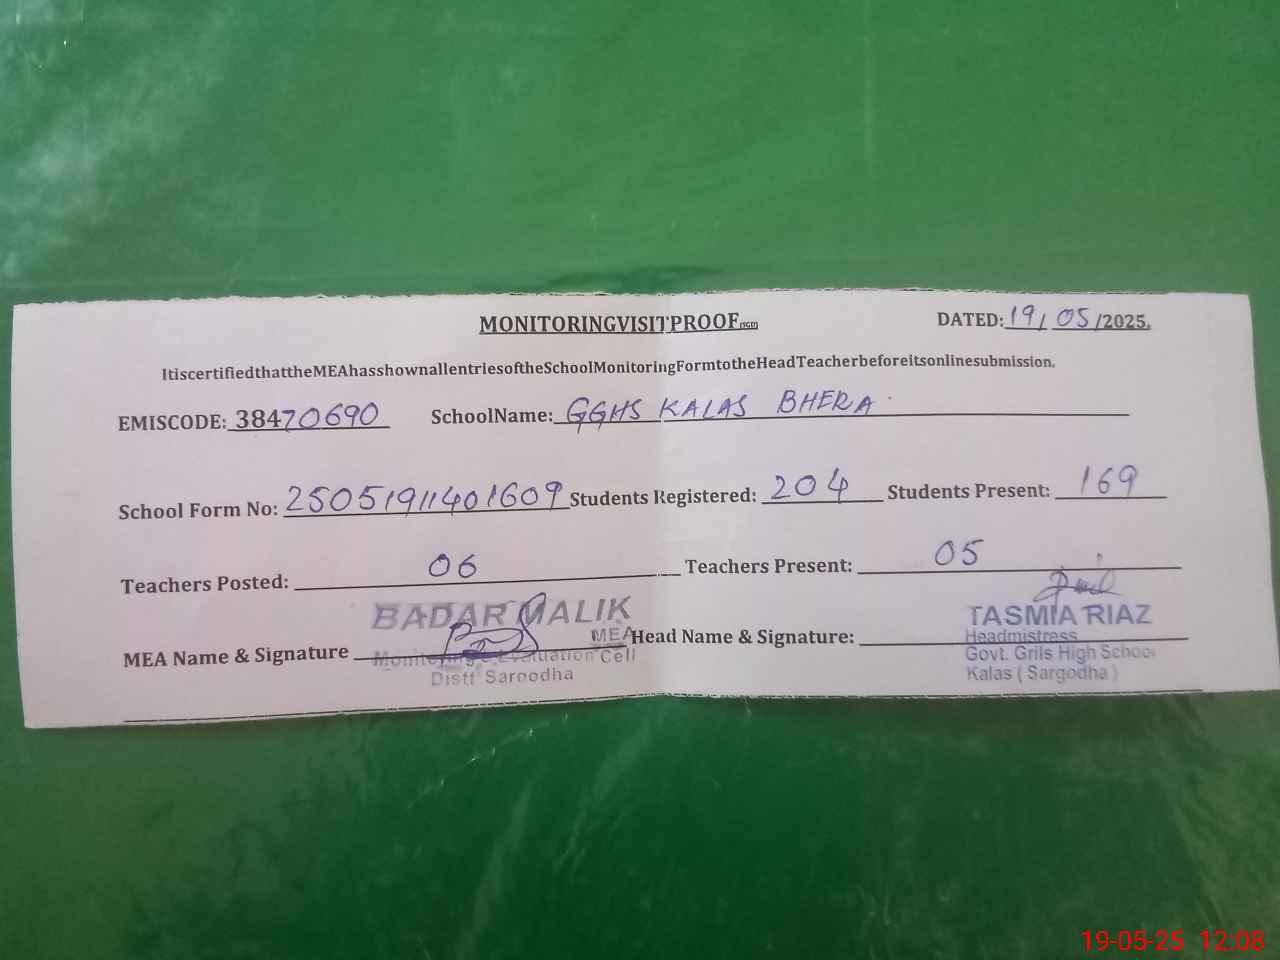 MONITORINGVISITPROOF(SGD)
DATED: 19/ 05 /2025.
ItiscertifiedthattheMEAhasshownallentriesoftheSchoolMonitoringFormtotheHeadTeacherbeforeitsonlinesubmission.
EMISCODE: 38470690 SchoolName: GGHS KALAS BHERA
School Form No: 25051911401609 Students Registered: 204 Students Present: 169
Teachers Posted: 06 Teachers Present: 05
BADAR MALIK
MEA
Monitoring & Evaluation Cell
Distt Sargodha
MEA Name & Signature
Head Name & Signature:
TASMIA RIAZ
Headmistress
Govt. Grils High School
Kalas ( Sargodha )
19-05-25 12:08